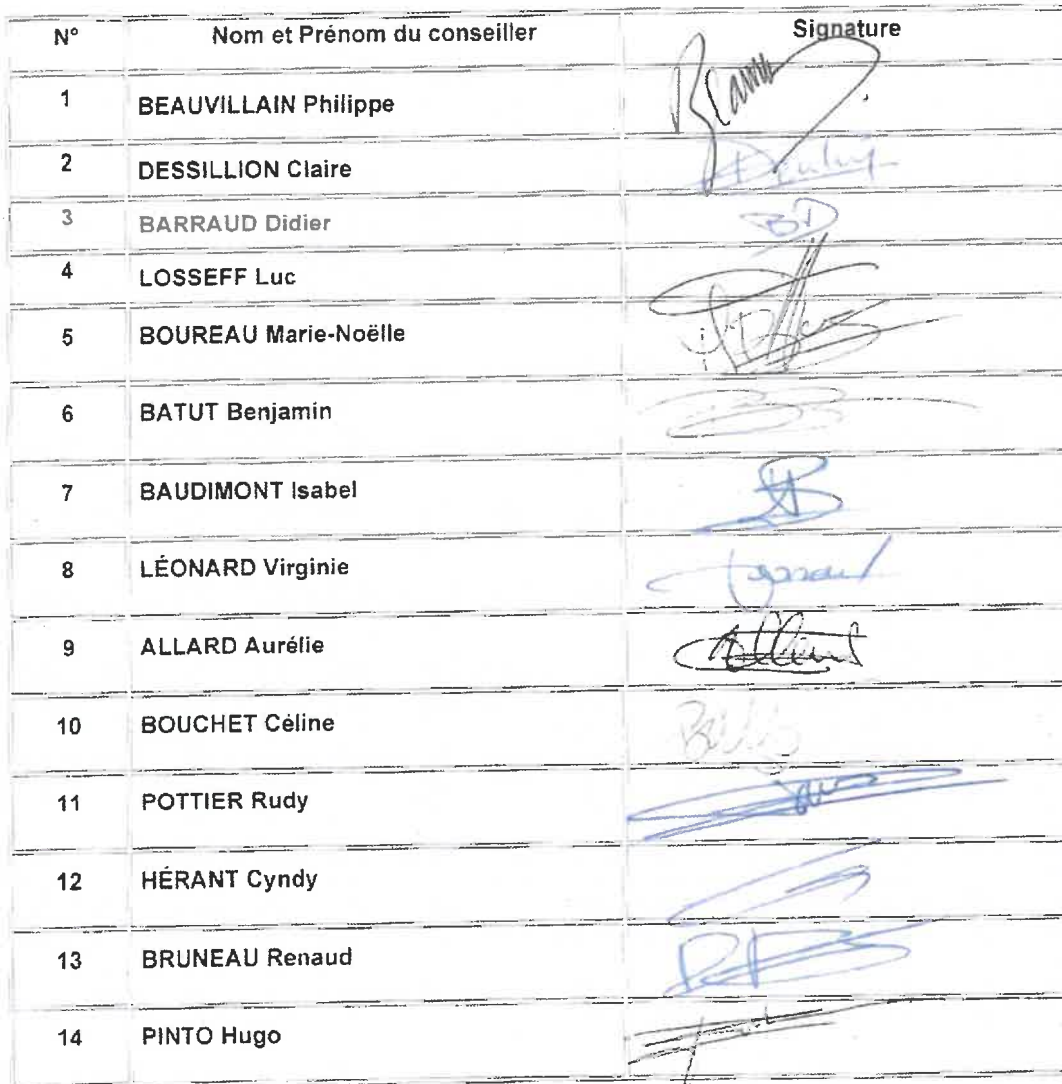 N° Nom et Prénom du conseiller Signature
1 BEAUVILLAIN Philippe
2 DESSILLION Claire
3 BARRAUD Didier BD
4 LOSSEFF Luc
5 BOUREAU Marie-Noëlle
6 BATUT Benjamin
7 BAUDIMONT Isabel
8 LÉONARD Virginie
9 ALLARD Aurélie
10 BOUCHET Céline
11 POTTIER Rudy
12 HÉRANT Cyndy
13 BRUNEAU Renaud
14 PINTO Hugo